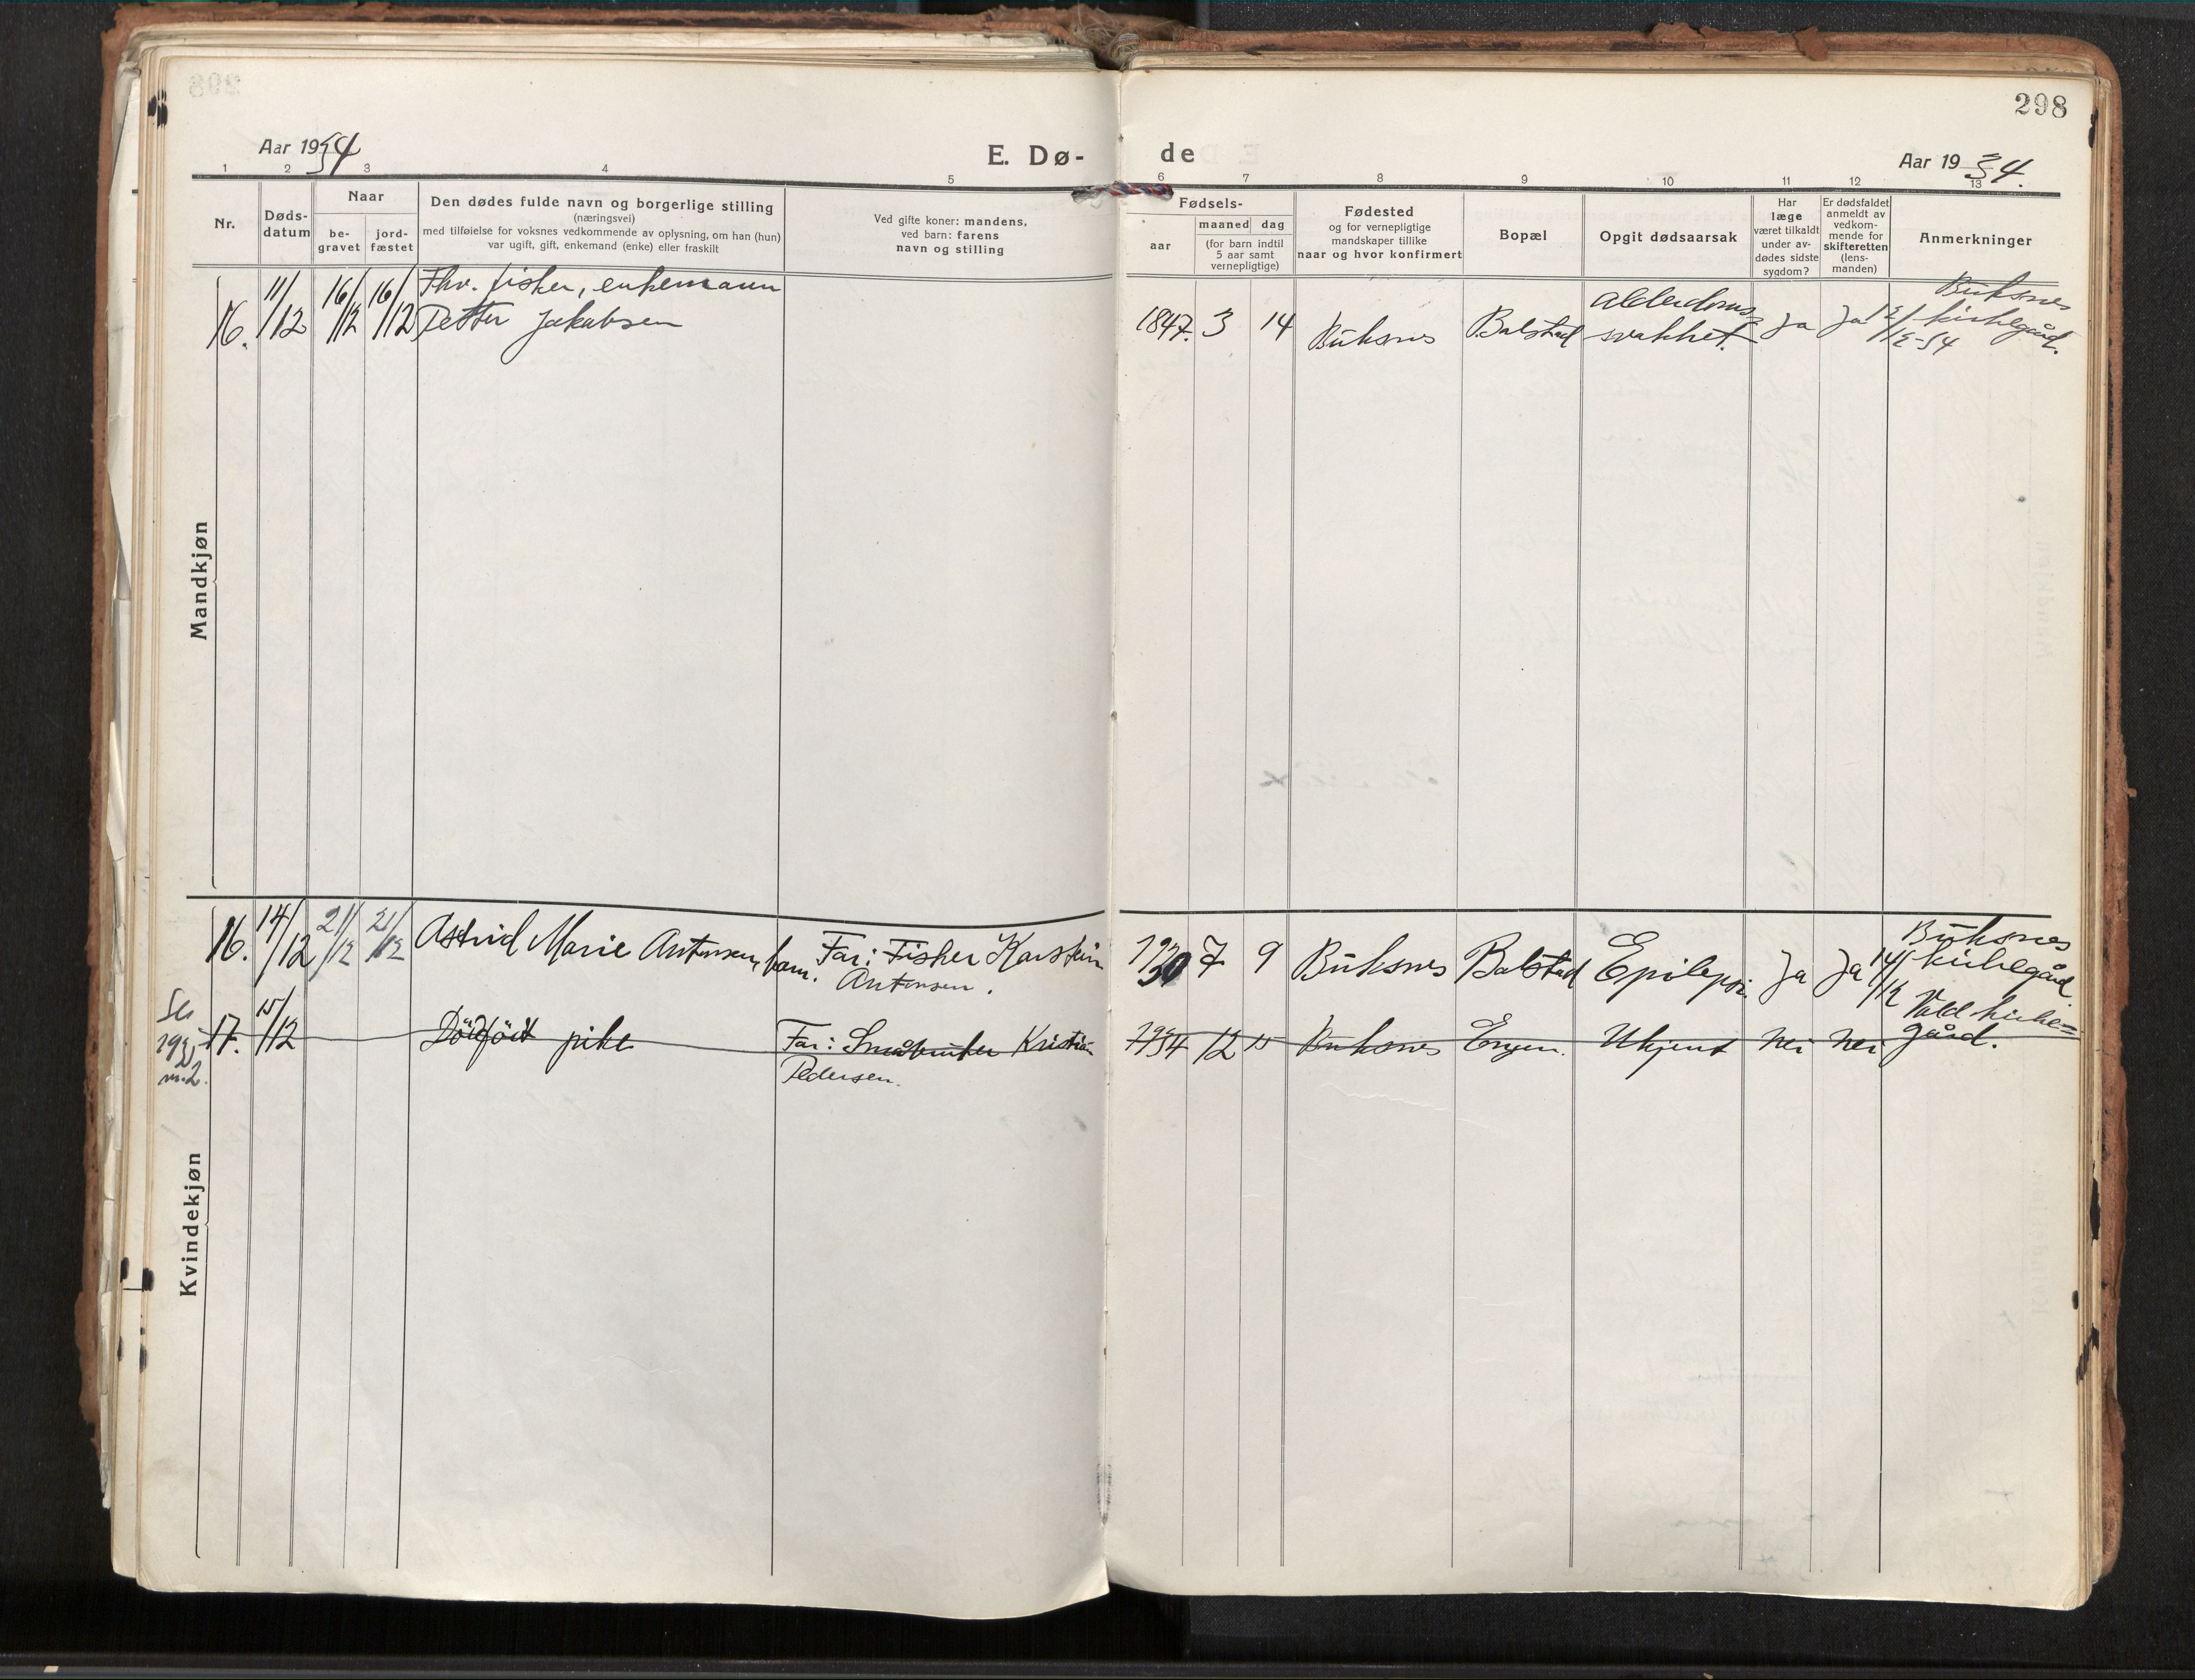 298
Aar 1934
E. Dø-
de
Aar 1934.
1 2 3 4 5 6 7 8 9 10 11 12 13
Nr.
Døds-
datum
Naar
be-
gravet
jord-
fæstet
Den dødes fulde navn og borgerlige stilling
(næringsvei)
med tilføielse for voksnes vedkommende av oplysning, om han (hun)
var ugift, gift, enkemand (enke) eller fraskilt
Ved gifte koner: mandens,
ved barn: farens
navn og stilling
Fødsels-
aar
maaned dag
(for barn indtil
5 aar samt
vernepligtige)
Fødested
og for vernepligtige
mandskaper tillike
naar og hvor konfirmert
Bopæl
Opgit dødsaarsak
Har
læge
været tilkaldt
under av-
dødes sidste
sygdom?
Er dødsfaldet
anmeldt av
vedkom-
mende for
skifteretten
(lens-
manden)
Anmerkninger
Mandkjøn
16. 11/12 16/12 16/12
Fhv. fisker, enkemann
Petter Jakobsen
1847. 3 14 Buksnes Balstad
Alderdoms-
svakhet.
Ja Ja 12/12-34
Buksnes
kirkegård.
Kvindekjøn
16. 14/12 21/12 21/12 Astrid Marie Antonsen, barn.
Far: Fisker Karstein
Antonsen.
1930 7 9 Buksnes Balstad Epilepsi Ja Ja 14/12
Buksnes
kirkegård.
Se
193
nr. 2.
17. 15/12 Dödfödt pike
Far: Småbruker Kristian
Pedersen.
1934 12 15 Buksnes Engen. Ukjent Nei Nei
Vold kirke=
gård.